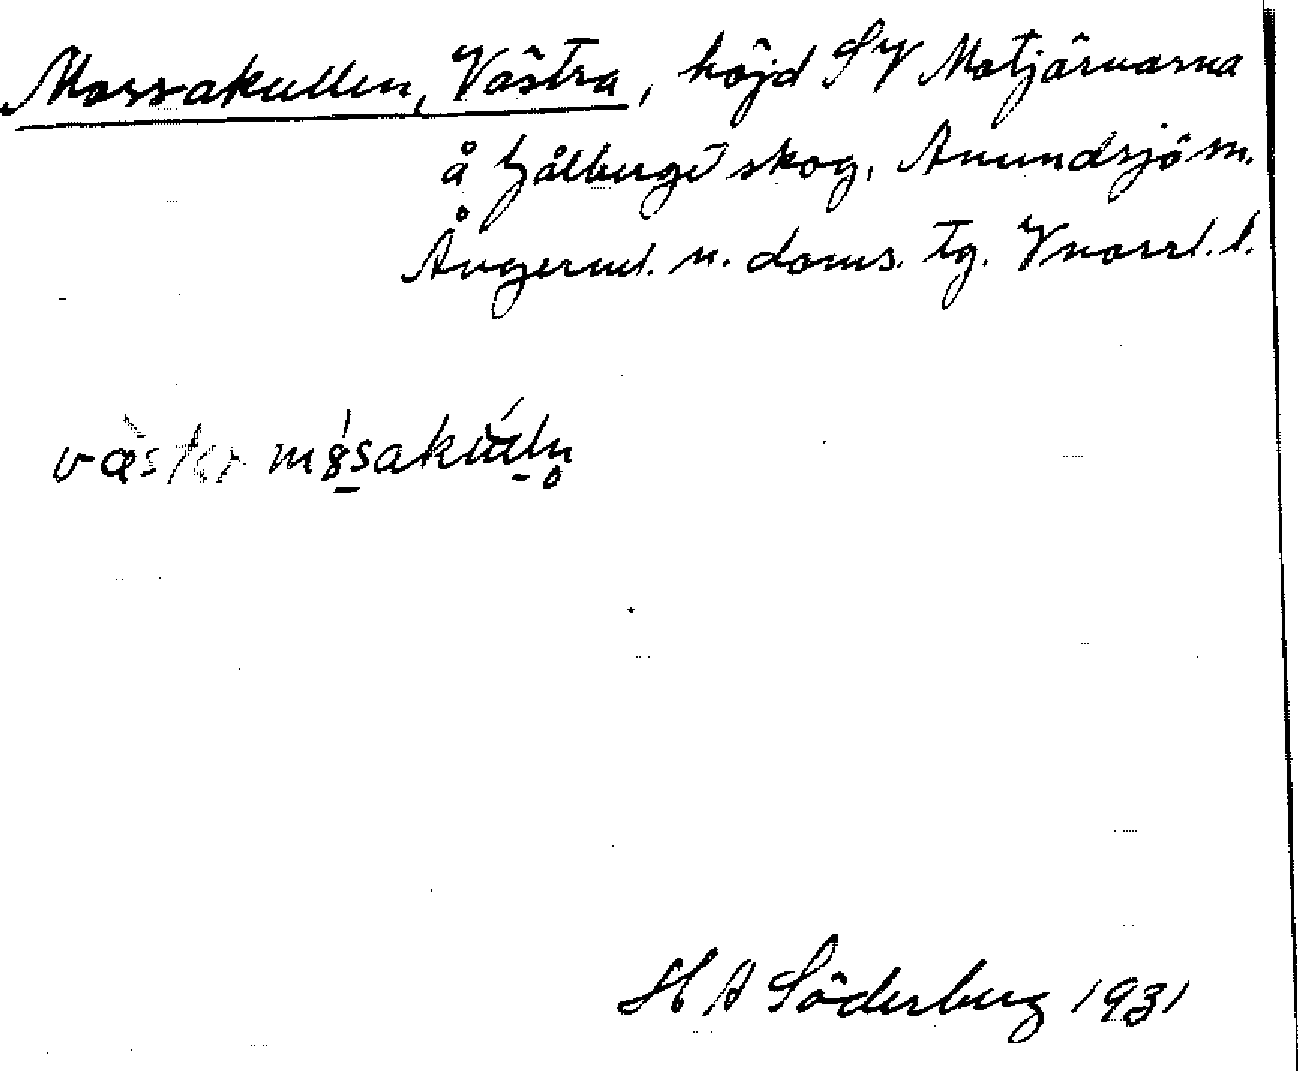 Mossakullen, Västra, höjd SV Motjärnarna
å Hålberget skog, Anundsjö sn.
Ångerml. n. doms. tg. Vnorrl. l.
väster måsakulln
H A Söderberg 1931